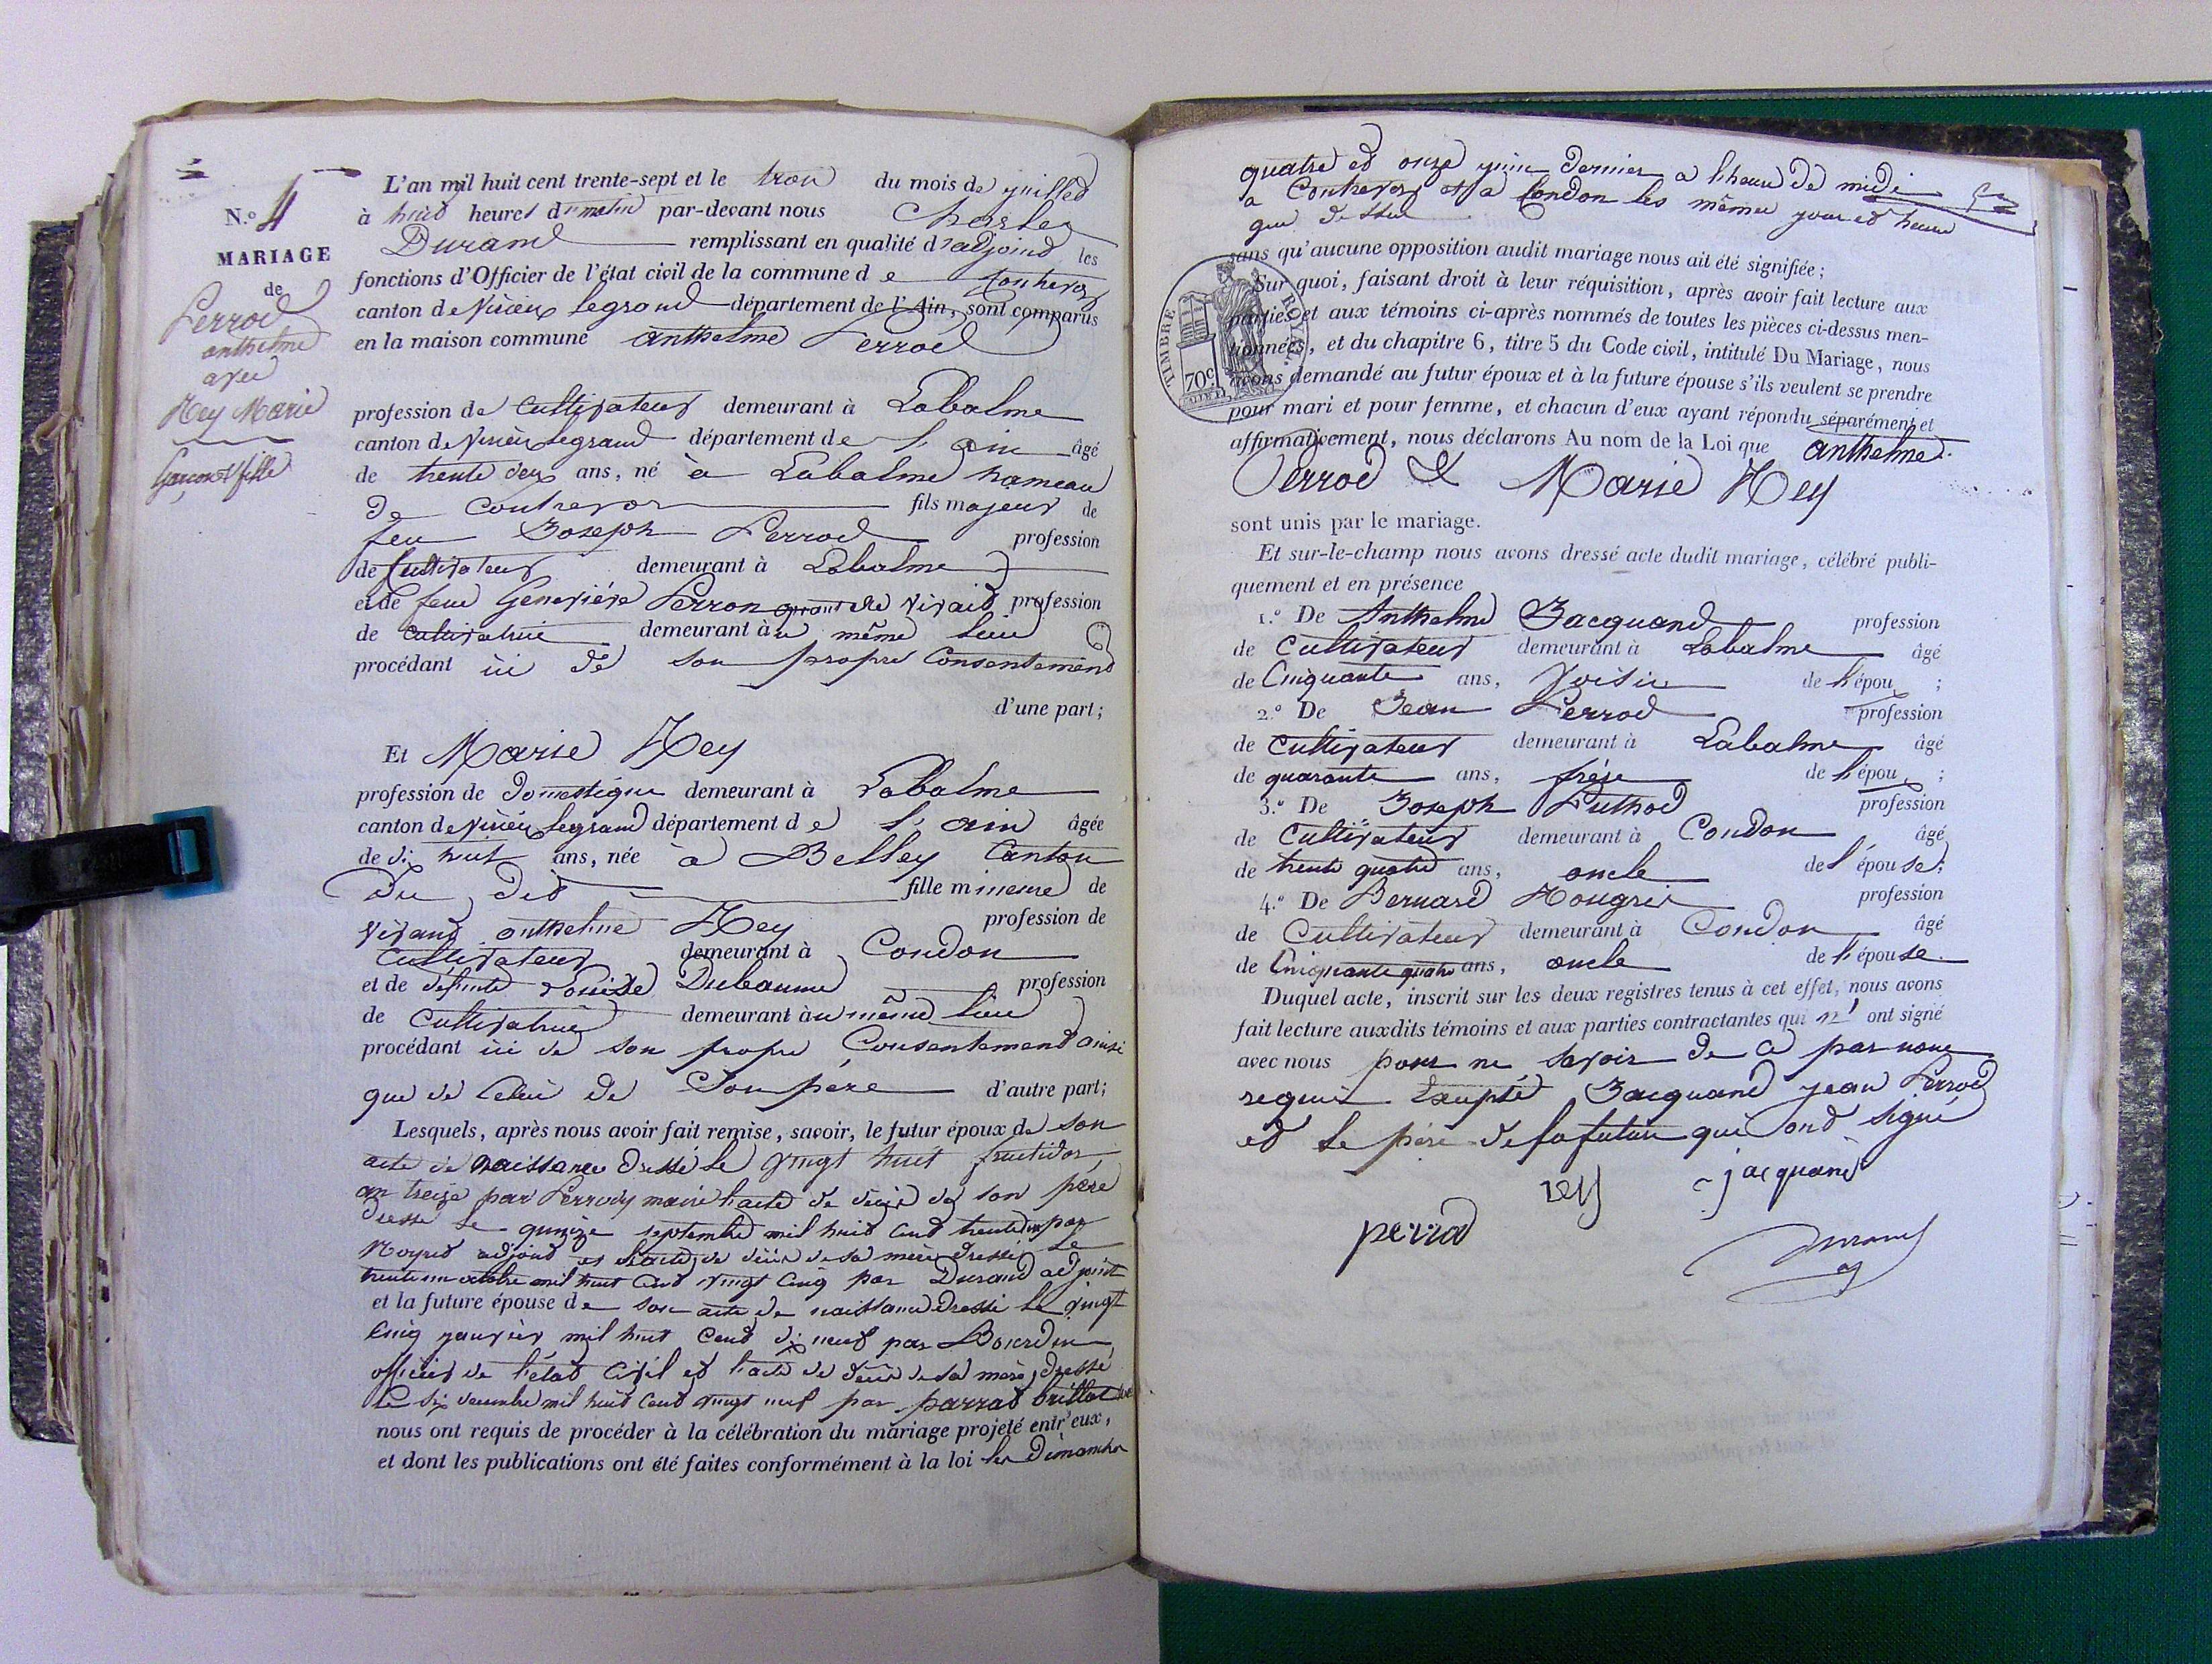 N.o 4
MARIAGE
de
Perrod
anthelme
avec
Rey Marie
Garçon et fille
L'an mil huit cent trente-sept et le trois du mois de juillet
à huit heures du matin par-devant nous Charles
Durand remplissant en qualité d'adjoint les
fonctions d'Officier de l'état civil de la commune de Contrevoz
canton de Virieux Legrand département de l'Ain, sont comparus
en la maison commune anthelme Perrod
profession de Cultivateur demeurant à Labalme
canton de Virieu Legrand département de l'ain âgé
de trente deux ans, né à Labalme hameau
de Contrevoz fils majeur de
feu Joseph Perrod profession
de Cultivateur demeurant à Labalme
et de feue Geneviève Perron quand elle vivait profession
de cultivatrice demeurant àu même lieu
procédant ici de son propre Consentement
d'une part;
Et Marie Rey
profession de Domestique demeurant à Labalme
canton de Virieu Legrand département de l'ain âgée
de dix huit ans, née à Belley Canton
du dit fille mineure de
vivant anthelme Rey profession de
Cultivateur demeurant à Condon
et de défunte Louise Dubaume profession
de Cultivatrice demeurant àu même lieu
procédant ici de son propre Consentement ainsi
que de Celui de Son père d'autre part;
Lesquels, après nous avoir fait remise, savoir, le futur époux de son
acte de naissance dressé le vingt huit fructidor
an treize par Perrody maire l'acte de décès de son père
dressé le quinze septembre mil huit cent trente deux par
adjoint et l'acte de décès de sa mère dressé le
trente un octobre mil huit cent vingt cinq par Durand adjoint
et la future épouse de son acte de naissance dressé le vingt
cinq janvier mil huit cent dix neuf par Bourdin
officier de l'état Civil et l'acte de décès de sa mère dressé
le dix décembre mil huit cent vingt neuf par parrat brillat
nous ont requis de procéder à la célébration du mariage projeté entr'eux,
et dont les publications ont été faites conformément à la loi les Dimanches
quatre et onze juin dernier a l'heure de midi
a Contrevoz et a Condon les mêmes jour et heure
que dessus
sans qu'aucune opposition audit mariage nous ait été signifiée;
Sur quoi, faisant droit à leur réquisition, après avoir fait lecture aux
parties et aux témoins ci-après nommés de toutes les pièces ci-dessus men-
tionnées, et du chapitre 6, titre 5 du Code civil, intitulé Du Mariage, nous
avons demandé au futur époux et à la future épouse s'ils veulent se prendre
pour mari et pour femme, et chacun d'eux ayant répondu séparément et
affirmativement, nous déclarons Au nom de la Loi que anthelme
Perrod & Marie Rey
sont unis par le mariage.
TIMBRE ROYAL
70c.
Et sur-le-champ nous avons dressé acte dudit mariage, célébré publi-
quement et en présence
1.o De Anthelme Jacquand profession
de Cultivateur demeurant à Labalme âgé
de Cinquante ans, Voisin de l'épou ;
2.o De Jean Perrod profession
de Cultivateur demeurant à Labalme âgé
de quarante ans, frère de l'épou ;
3.o De Joseph Puthod profession
de Cultivateur demeurant à Condon âgé
de trente quatre ans, oncle de l'épouse;
4.o De Bernard profession
de Cultivateur demeurant à Condon âgé
de Cinquante quatre ans, oncle de l'épouse.
Duquel acte, inscrit sur les deux registres tenus à cet effet, nous avons
fait lecture auxdits témoins et aux parties contractantes qui n' ont signé
avec nous pour ne savoir de ce par nous
requis Excepté Jacquand jean Perrod
et le père de la future qui ont signé
rey jacquand
perrod
Durand